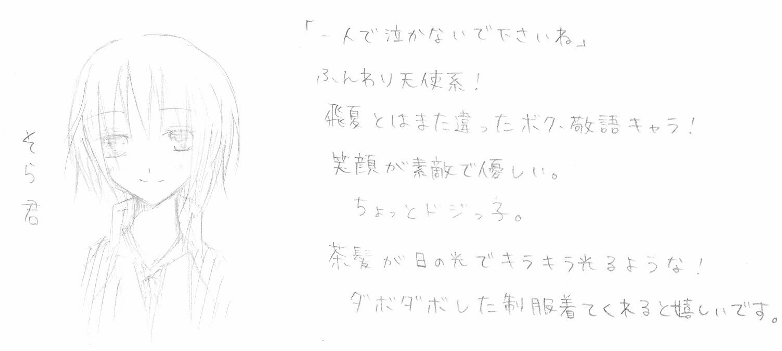 「一人で泣かないで下さいね」
ふんわり天使系!
飛夏とはまた違ったボク、敬語キャラ!
笑顔が素敵で優しい。
ちょっとドジっ子。
茶髪が日の光でキラキラ光るような!
ダボダボした制服着てくれると嬉しいです。
そら君